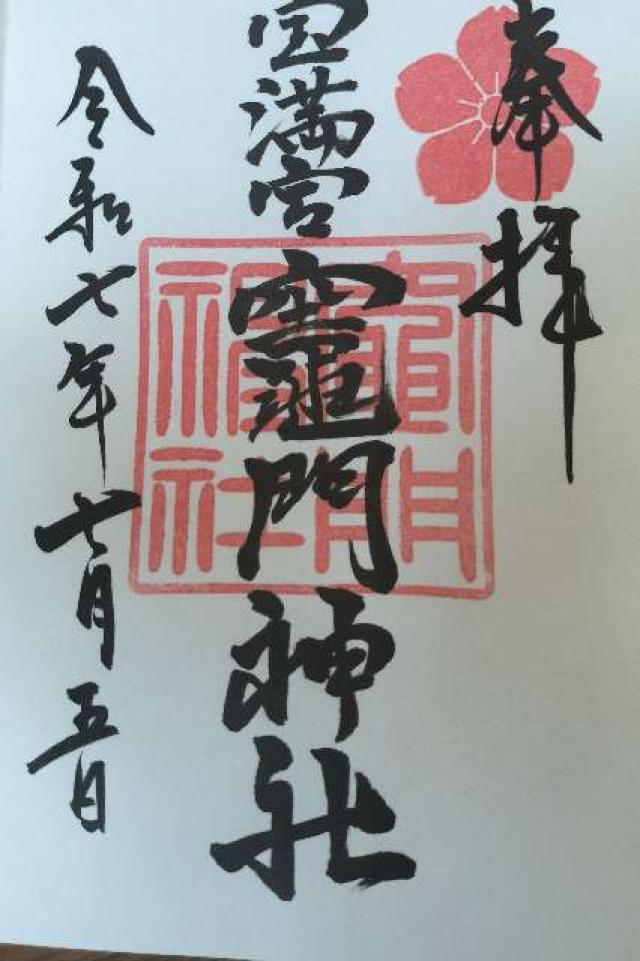 奉拝
宝満宮
竈門神社
令和七年七月五日
竈門
神社